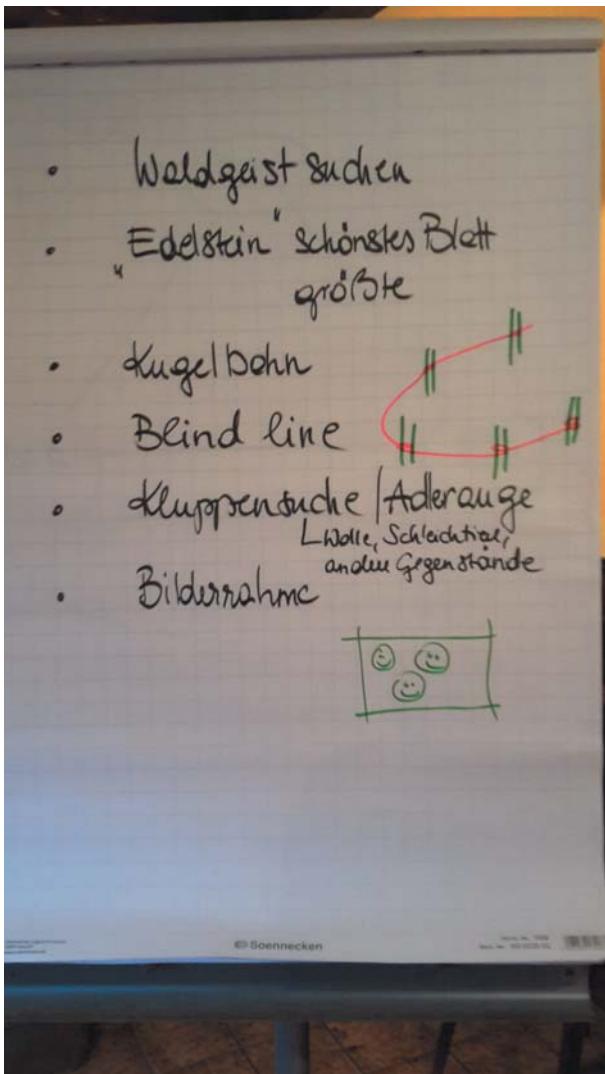 • Waldgeist suchen
• „Edelstein" schönstes Blatt
größte
• Kugelbahn
• Blind line
• Kluppensuche / Adlerauge
Wolle, Schleichtiere,
andere Gegenstände
• Bilderrahme
Soennecken